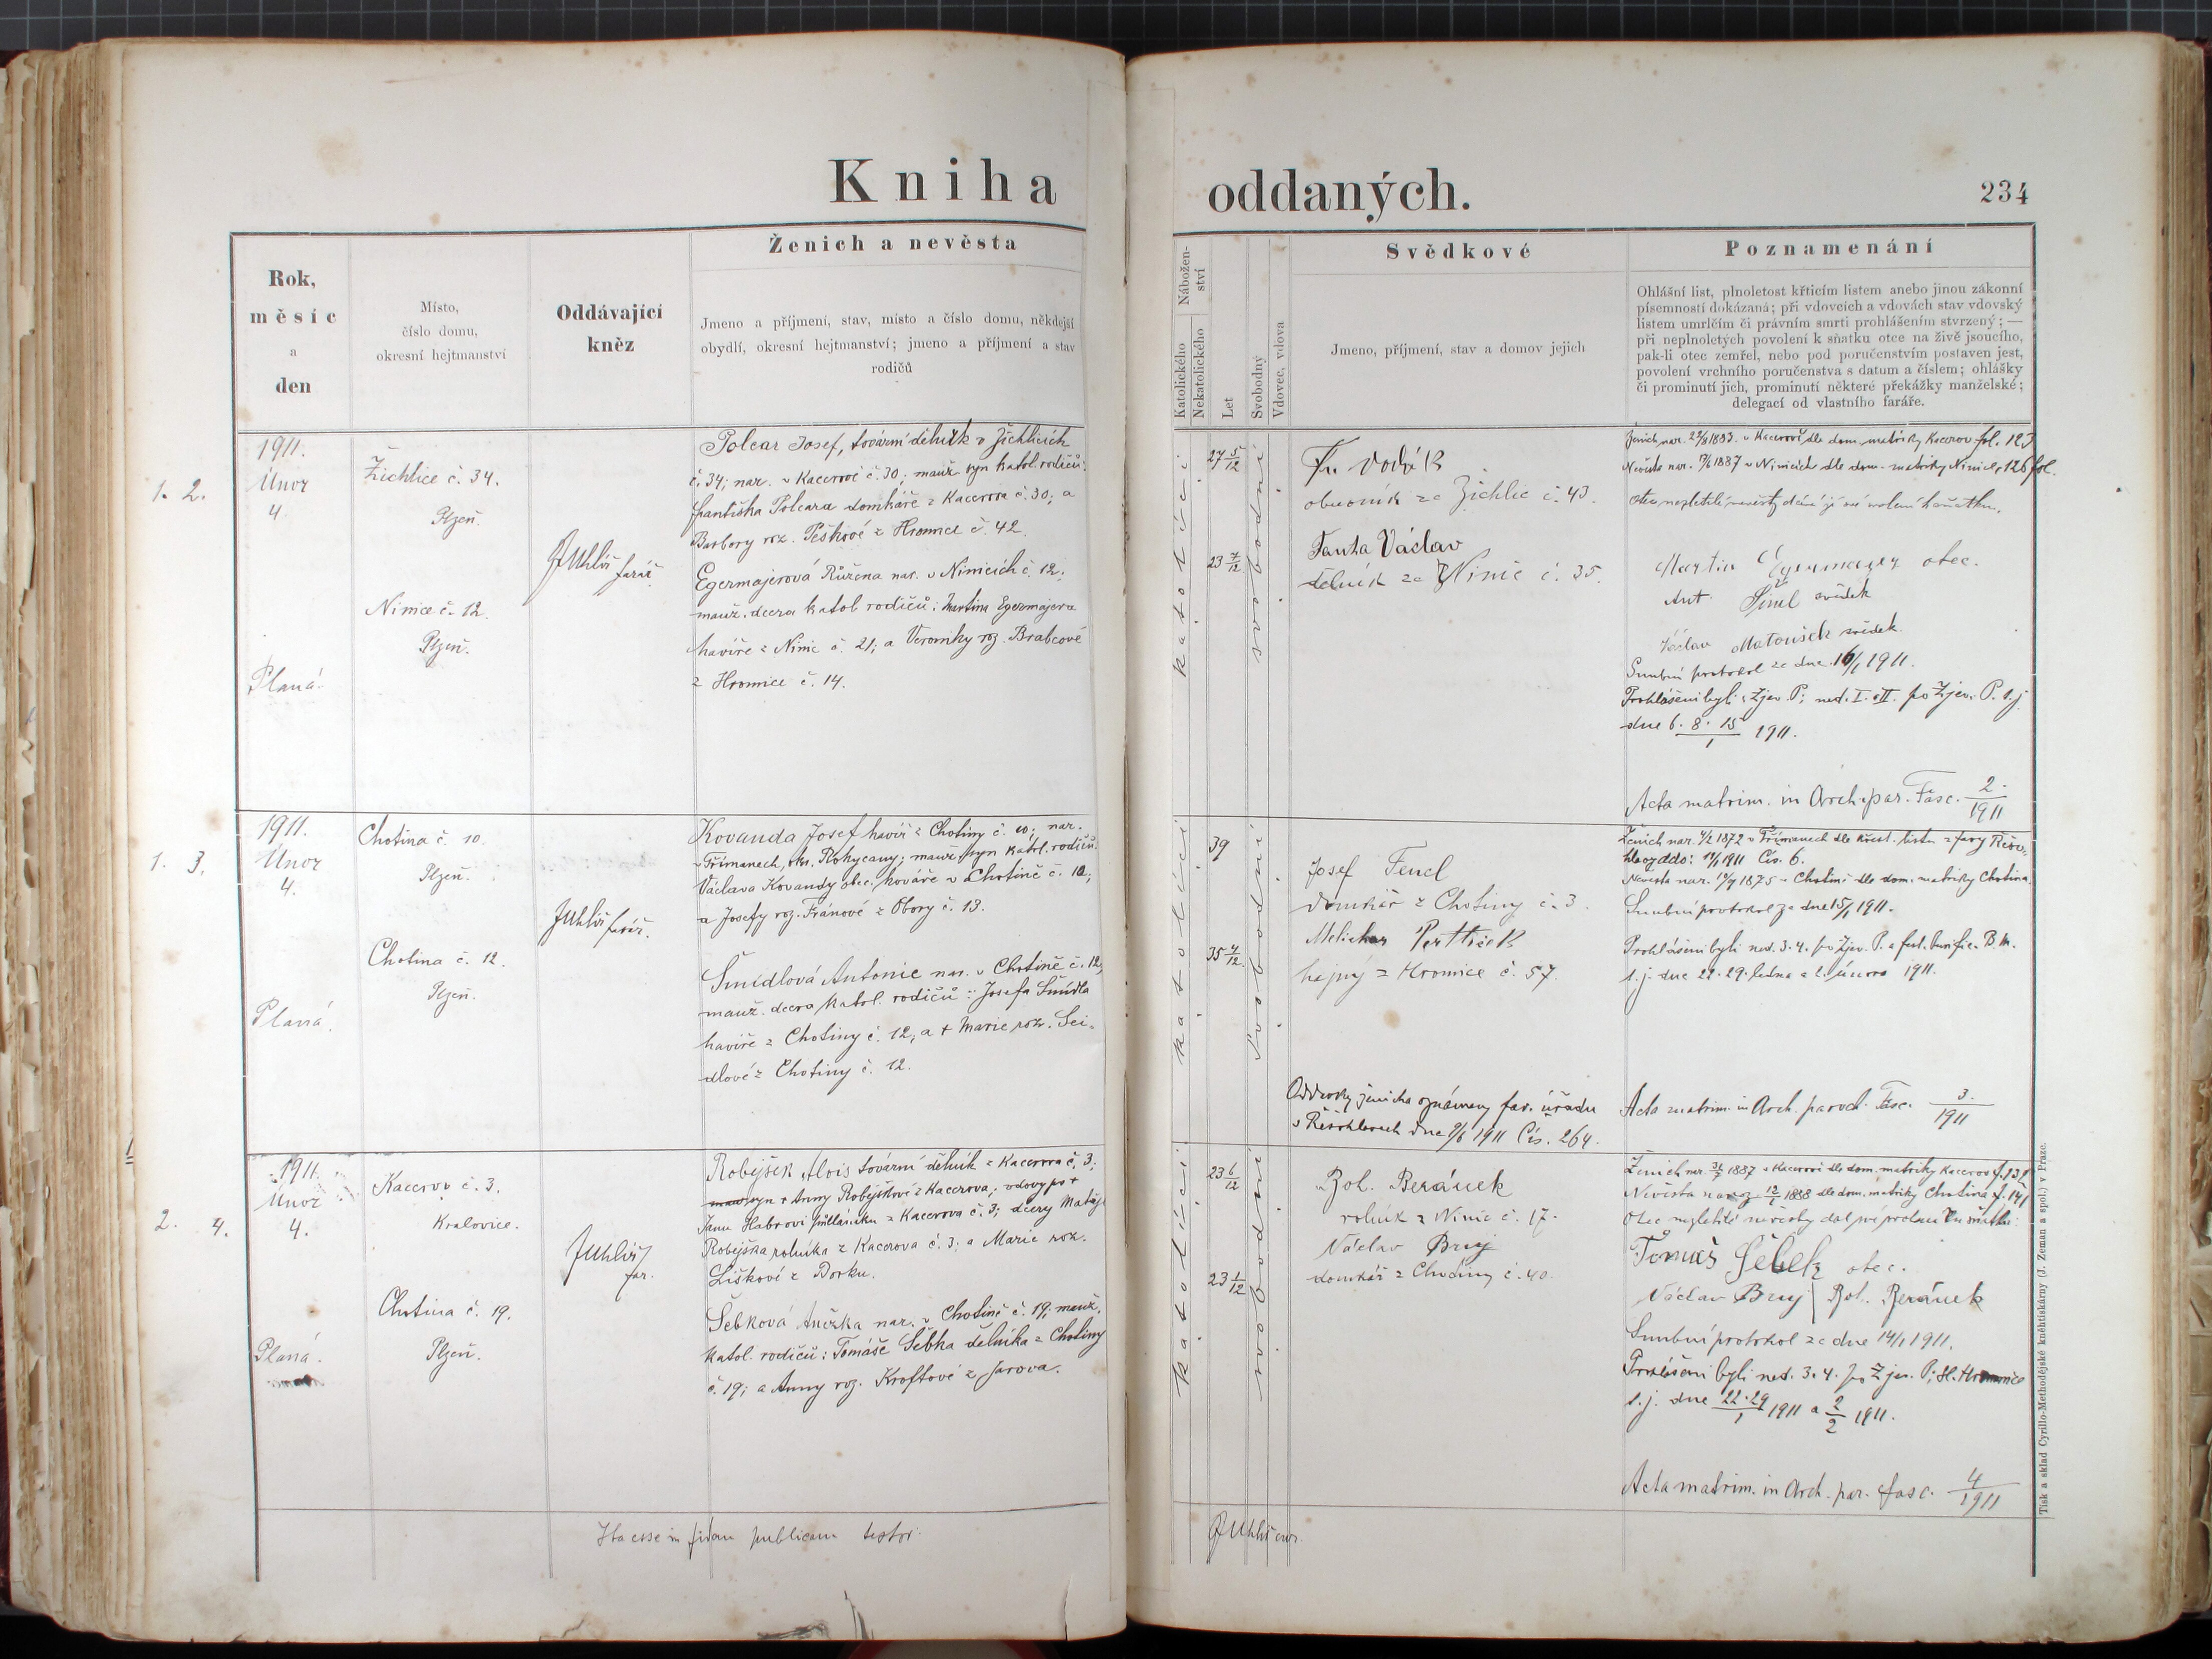 Kniha oddaných.
234
Rok,
měsíc
a
den
Místo,
číslo domu,
okresní hejtmanství
Oddávající
kněz
Ženich a nevěsta
Jmeno a příjmení, stav, místo a číslo domu, někdejší
obydlí, okresní hejtmanství; jmeno a příjmení a stav
rodičů
Nábožen-
ství
Katolického
Nekatolického
Let
Svobodný
Vdovec, vdova
Svědkové
Jmeno, příjmení, stav a domov jejich
Poznamenání
Ohlášní list, plnoletost křticím listem anebo jinou zákonní
písemností dokázaná; při vdovcích a vdovách stav vdovský
listem umrlčím či právním smrti prohlášením stvrzený; —
při neplnoletých povolení k sňatku otce na živě jsoucího,
pak-li otec zemřel, nebo pod poručenstvím postaven jest,
povolení vrchního poručenstva s datum a číslem; ohlášky
či prominutí jich, prominutí některé překážky manželské;
delegací od vlastního faráře.
1. 2.
1911.
Únor
4.
Planá.
Žichlice č. 34.
Plzeň.
Ninice č. 12.
Plzeň.
JUhlíř
farář.
Polcar Josef, tovární dělník v Žichlicích
č. 34; nar. v Kacerově č. 30; manž. syn katol. rodičů:
Františka Polcara domkáře z Kacerova č. 30; a
Barbory roz. Peškové z Hromice č. 42.
Egermajerová Růžena nar. v Ninicích č. 12;
manž. dcera katol rodičů: Martina Egermajera
havíře z Ninic č. 21; a Veroniky roz. Brabcové
z Hromice č. 14.
katolíci
27 5/12
23 7/12
svobodní
Fr. Vodák
obuvník ze Žichlic č. 43.
Fanta Václav
dělník ze Ninic č. 35.
Ženich nar. 1883. v Kacerově dle dom. matriky Kacerov fol. 123
Nevěsta nar. 1887 v Ninicích dle dom. matriky Ninice, 126 fol.
Martin Egermayer otec.
Ant. svědek
Václav Matoušek svědek.
Snubní protokol ze dne 16/1 1911.
Prohlášeni byli: Zjev. P; ned. I. a II. po Zjev. P. t. j.
dne 6. 8. 15/1 1911.
Acta matrim. in Arch. par. Fasc. 2/1911
1. 3.
1911.
Únor
4.
Planá.
Chotina č. 10.
Plzeň.
Chotina č. 12.
Plzeň.
JUhlíř farář.
Kovanda Josef havíř z Chotiny č. 10; nar.
v Třímanech, okr. Rokycany; manž. syn katol. rodičů:
Václava Kovandy obec. kováře v Chotině č. 10;
a Josefy roz. Fránové z Obory č. 13.
Šmídlová Antonie nar. v Chotině č. 12,
manž. dcera katol. rodičů: Josefa Šmídla
havíře z Chotiny č. 12, a † Marie roz. Sei-
dlové z Chotiny č. 12.
katolíci
39
35 4/12
svobodní
Josef Fencl
domkář z Chotiny č. 3.
Melichar
hajný z Hromice č. 57.
Oddavky ženicha oznámeny far. úřadu
dne 1911 Čís. 264.
Ženich nar. 1872 v Třímanech dle křest. listu z fary
1911 Čís. 6.
Nevěsta nar. 1875 v Chotině dle dom. matriky Chotina
Snubní protokol ze dne 15/1 1911.
Prohlášeni byli ned. 3. 4. po Zjev. P. a fest. Purific. B. M.
t. j. dne 22. 29. ledna a 2. února 1911.
Acta matrim. in Arch. paroch. Fasc. 3/1911
2. 4.
1911.
Únor
4.
Planá.
Kacerov č. 3.
Kralovice.
Chotina č. 19.
Plzeň.
JUhlíř
far.
Robejšek Alois tovární dělník z Kacerova č. 3;
syn † Anny Robejškové z Kacerova; vdovy po †
Janu Habrovi z Kacerova č. 3; dcery Matěje
Robejška rolníka z Kacerova č. 3; a Marie roz.
Liškové z Borku.
Šebková Anežka nar. v Chotině č. 19; manž.
katol. rodičů: Tomáše Šebka dělníka z Chotiny
č. 19; a Anny roz. Kroftové z Jarova.
katolíci
23 6/12
23 1/12
svobodní
Boh. Beránek
rolník z Ninic č. 17.
Václav Bruj
domkář z Chotiny č. 40.
Ženich nar. 1887 v Kacerově dle dom. matriky Kacerov
Nevěsta 1888 dle dom. matriky Chotina
Tomáš Šebek otec.
Václav Bruj | Boh. Beránek
Snubní protokol ze dne 14/1 1911.
Prohlášeni byli ned. 3. 4. po Zjev. P;
t. j. dne 22. 29/1 1911 a 2/2 1911.
Acta matrim. in Arch. par. fasc. 4/1911
Ita esse in fidem publicam testor.
JUhlíř
Tisk a sklad Cyrillo-Methodějské kněhtiskárny (J. Zeman a spol.) v Praze.